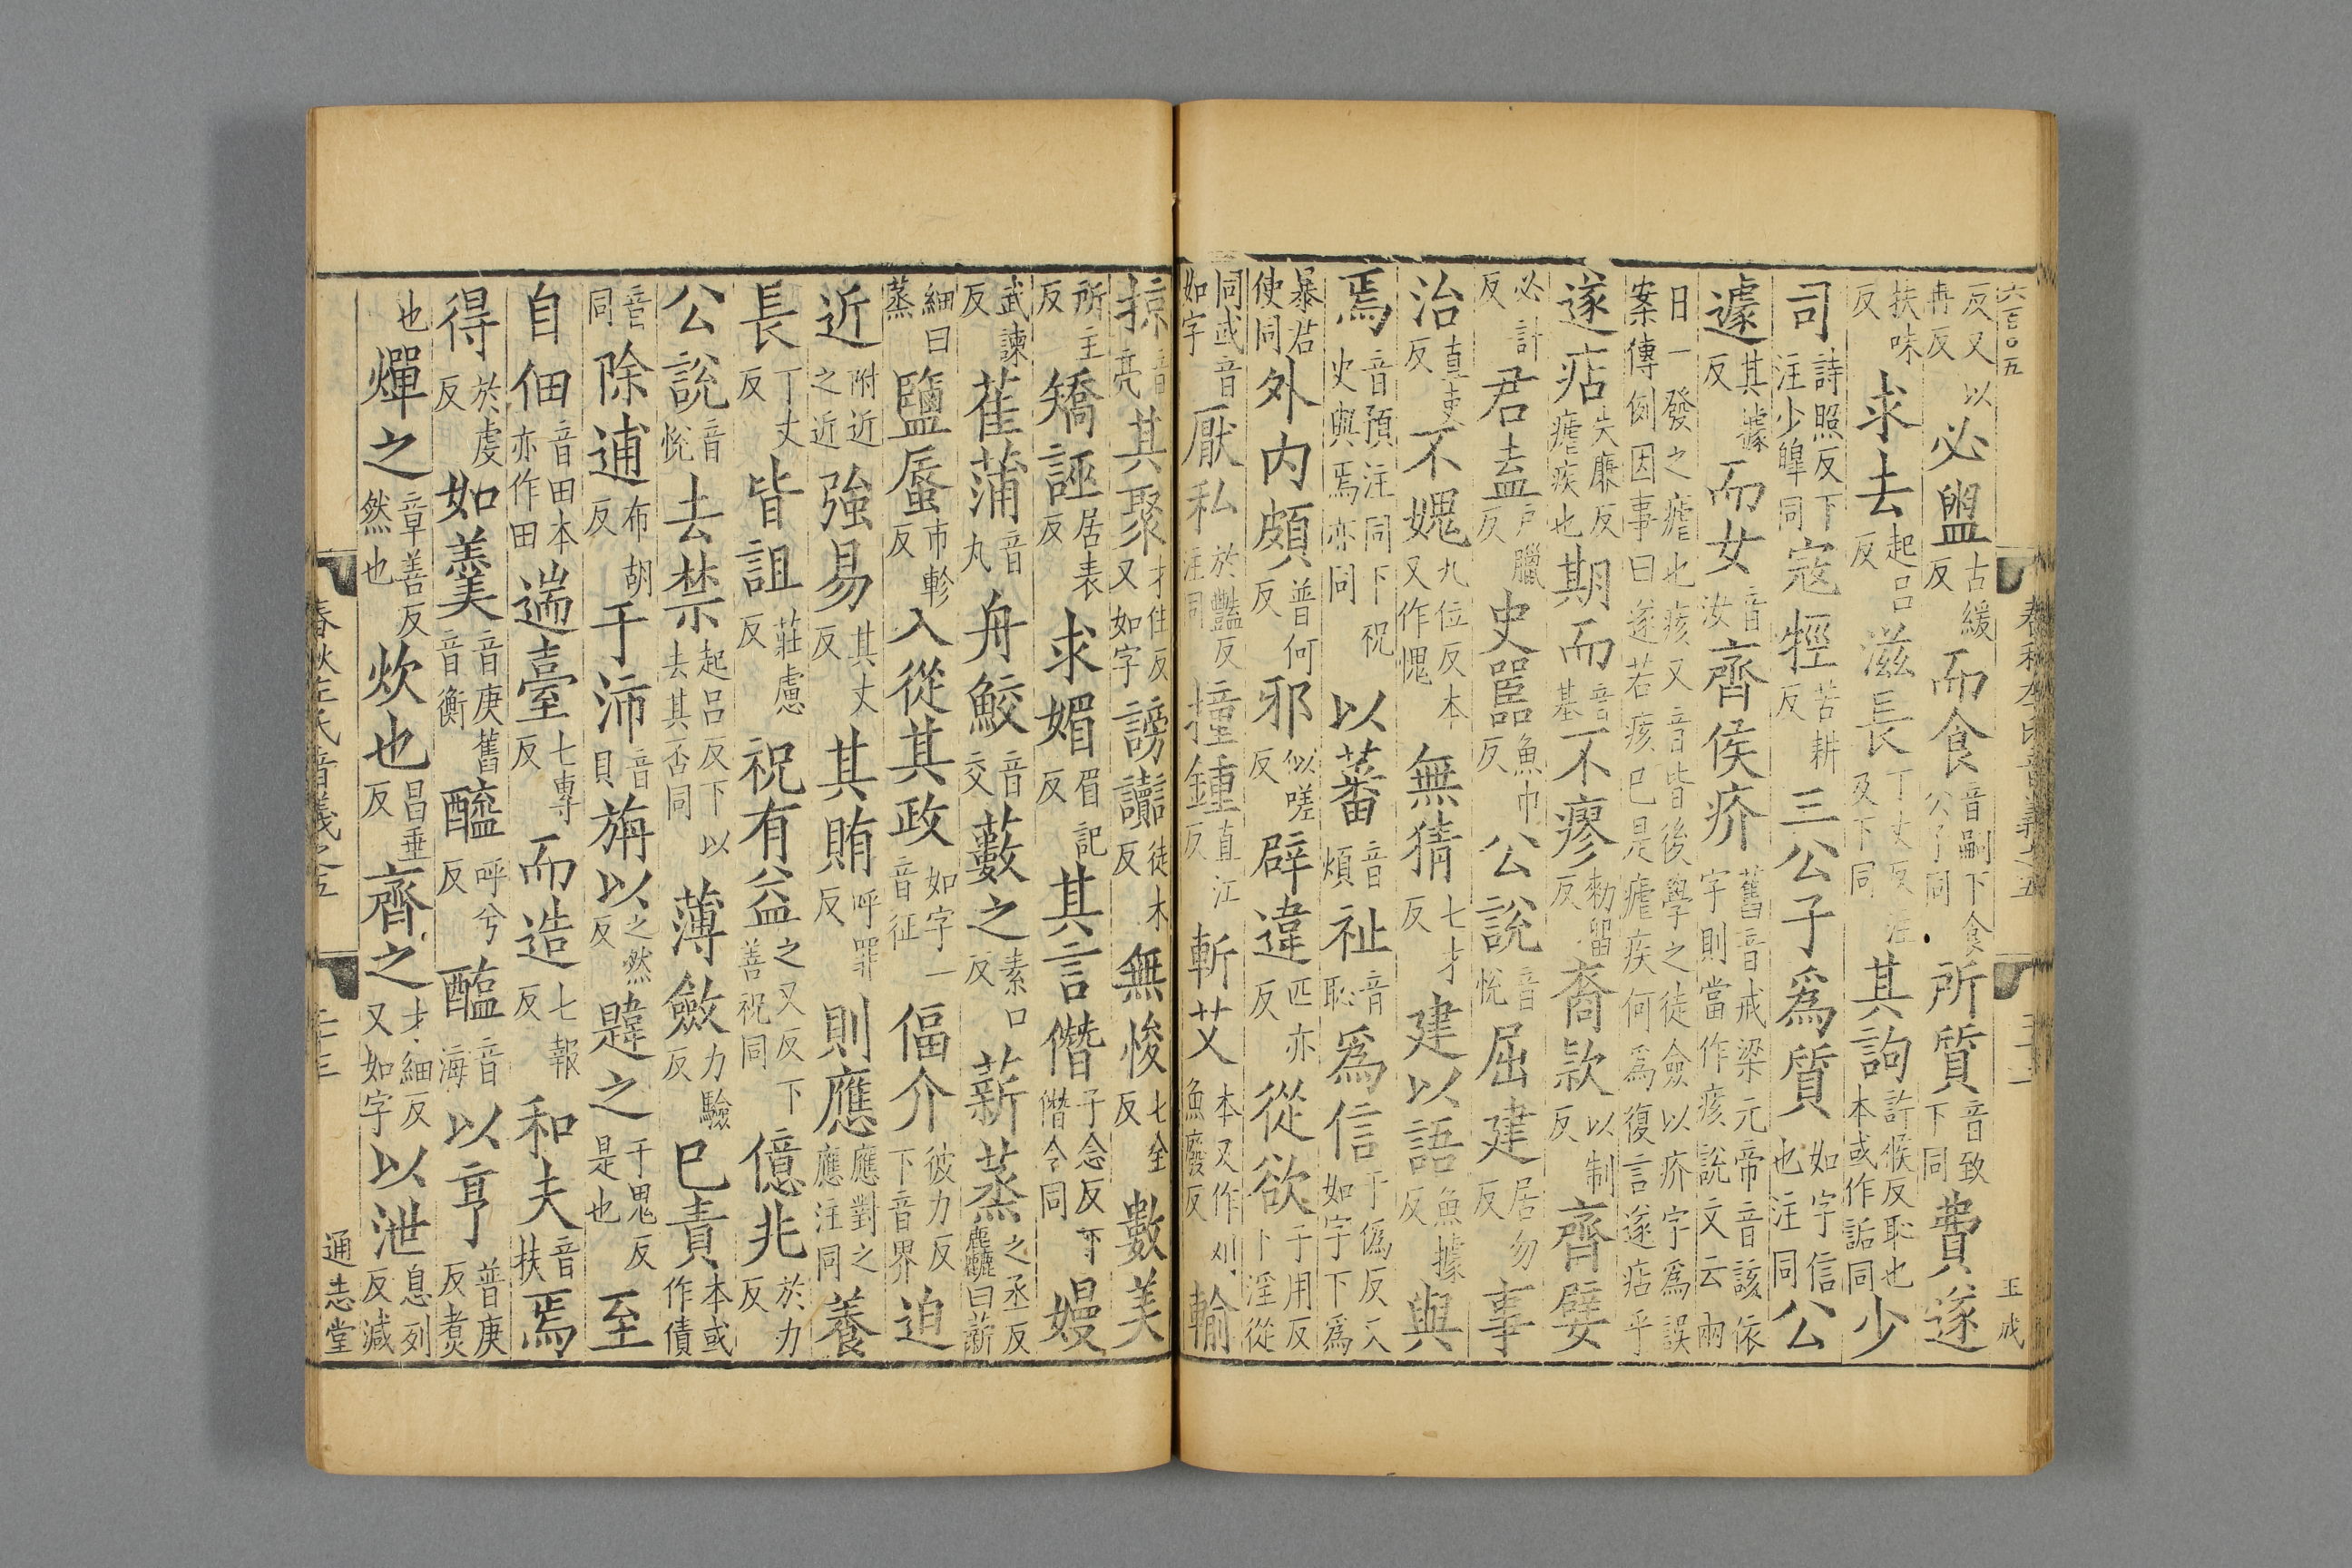 六百〇五 春秋左氏音義之五 二十二 玉成
反又以冉反必盥古緩反而食音嗣下食公子同所質音致下同費遂
扶味反求去起呂反滋長丁丈反注及下同其詢許候反恥也本或作詬同少
司詩照反下注少皥同寇牼苦耕反三公子為質如字信也注同公
遽其據反而女音汝齊侯疥舊音戒梁元帝音該依字則當作痎說文云兩
日一發之瘧也痎又音皆後學之徒僉以疥字為誤案傳例因事曰遂若痎已是瘧疾何為復言遂痁乎
遂痁失廉反瘧疾也期而音基不瘳勑留反裔款以制反齊嬖
必計反君盍戶臘反史嚚魚巾反公說音悅屈建居勿反事
治直吏反不媿九位反本又作愧無猜七才反建以語魚據反與
焉音預注同下祝史與焉亦同以蕃音煩祉音恥為信于偽反又如字下為
暴君使同外内頗普何反邪似嗟反辟違匹亦反從欲子用反下淫從
同或音如字厭私於豔反注同撞鍾直江反斬艾本又作刈魚廢反輸
掠音亮其聚才住反又如字謗讟徒木反無悛七全反數美
所主反矯誣居表反求媚眉記反其言僭子念反下僭令同嫚
武諫反萑蒲音丸舟鮫音交藪之素口反薪蒸之丞反麤曰薪
細曰蒸鹽蜃市軫反入從其政如字一音征偪介彼力反下音界迫
近附近之近強易其丈反其賄呼罪反則應應對之應注同養
長丁丈反皆詛莊慮反祝有益之又反下善祝同億兆於力反
公說音悅去禁起呂反下以去其否同薄斂力驗反已責本或作債
音同除逋布胡反于沛音貝旃以之然反韙之于鬼反是也至
自佃音田本亦作田遄臺七專反而造七報反和夫音扶焉
得於虔反如羹音庚舊音衡醯呼兮反醢音海以亨普庚反煮
也燀之章善反然也炊也昌垂反齊之才細反又如字以泄息列反減
春秋左氏音義之五 二十三 通志堂